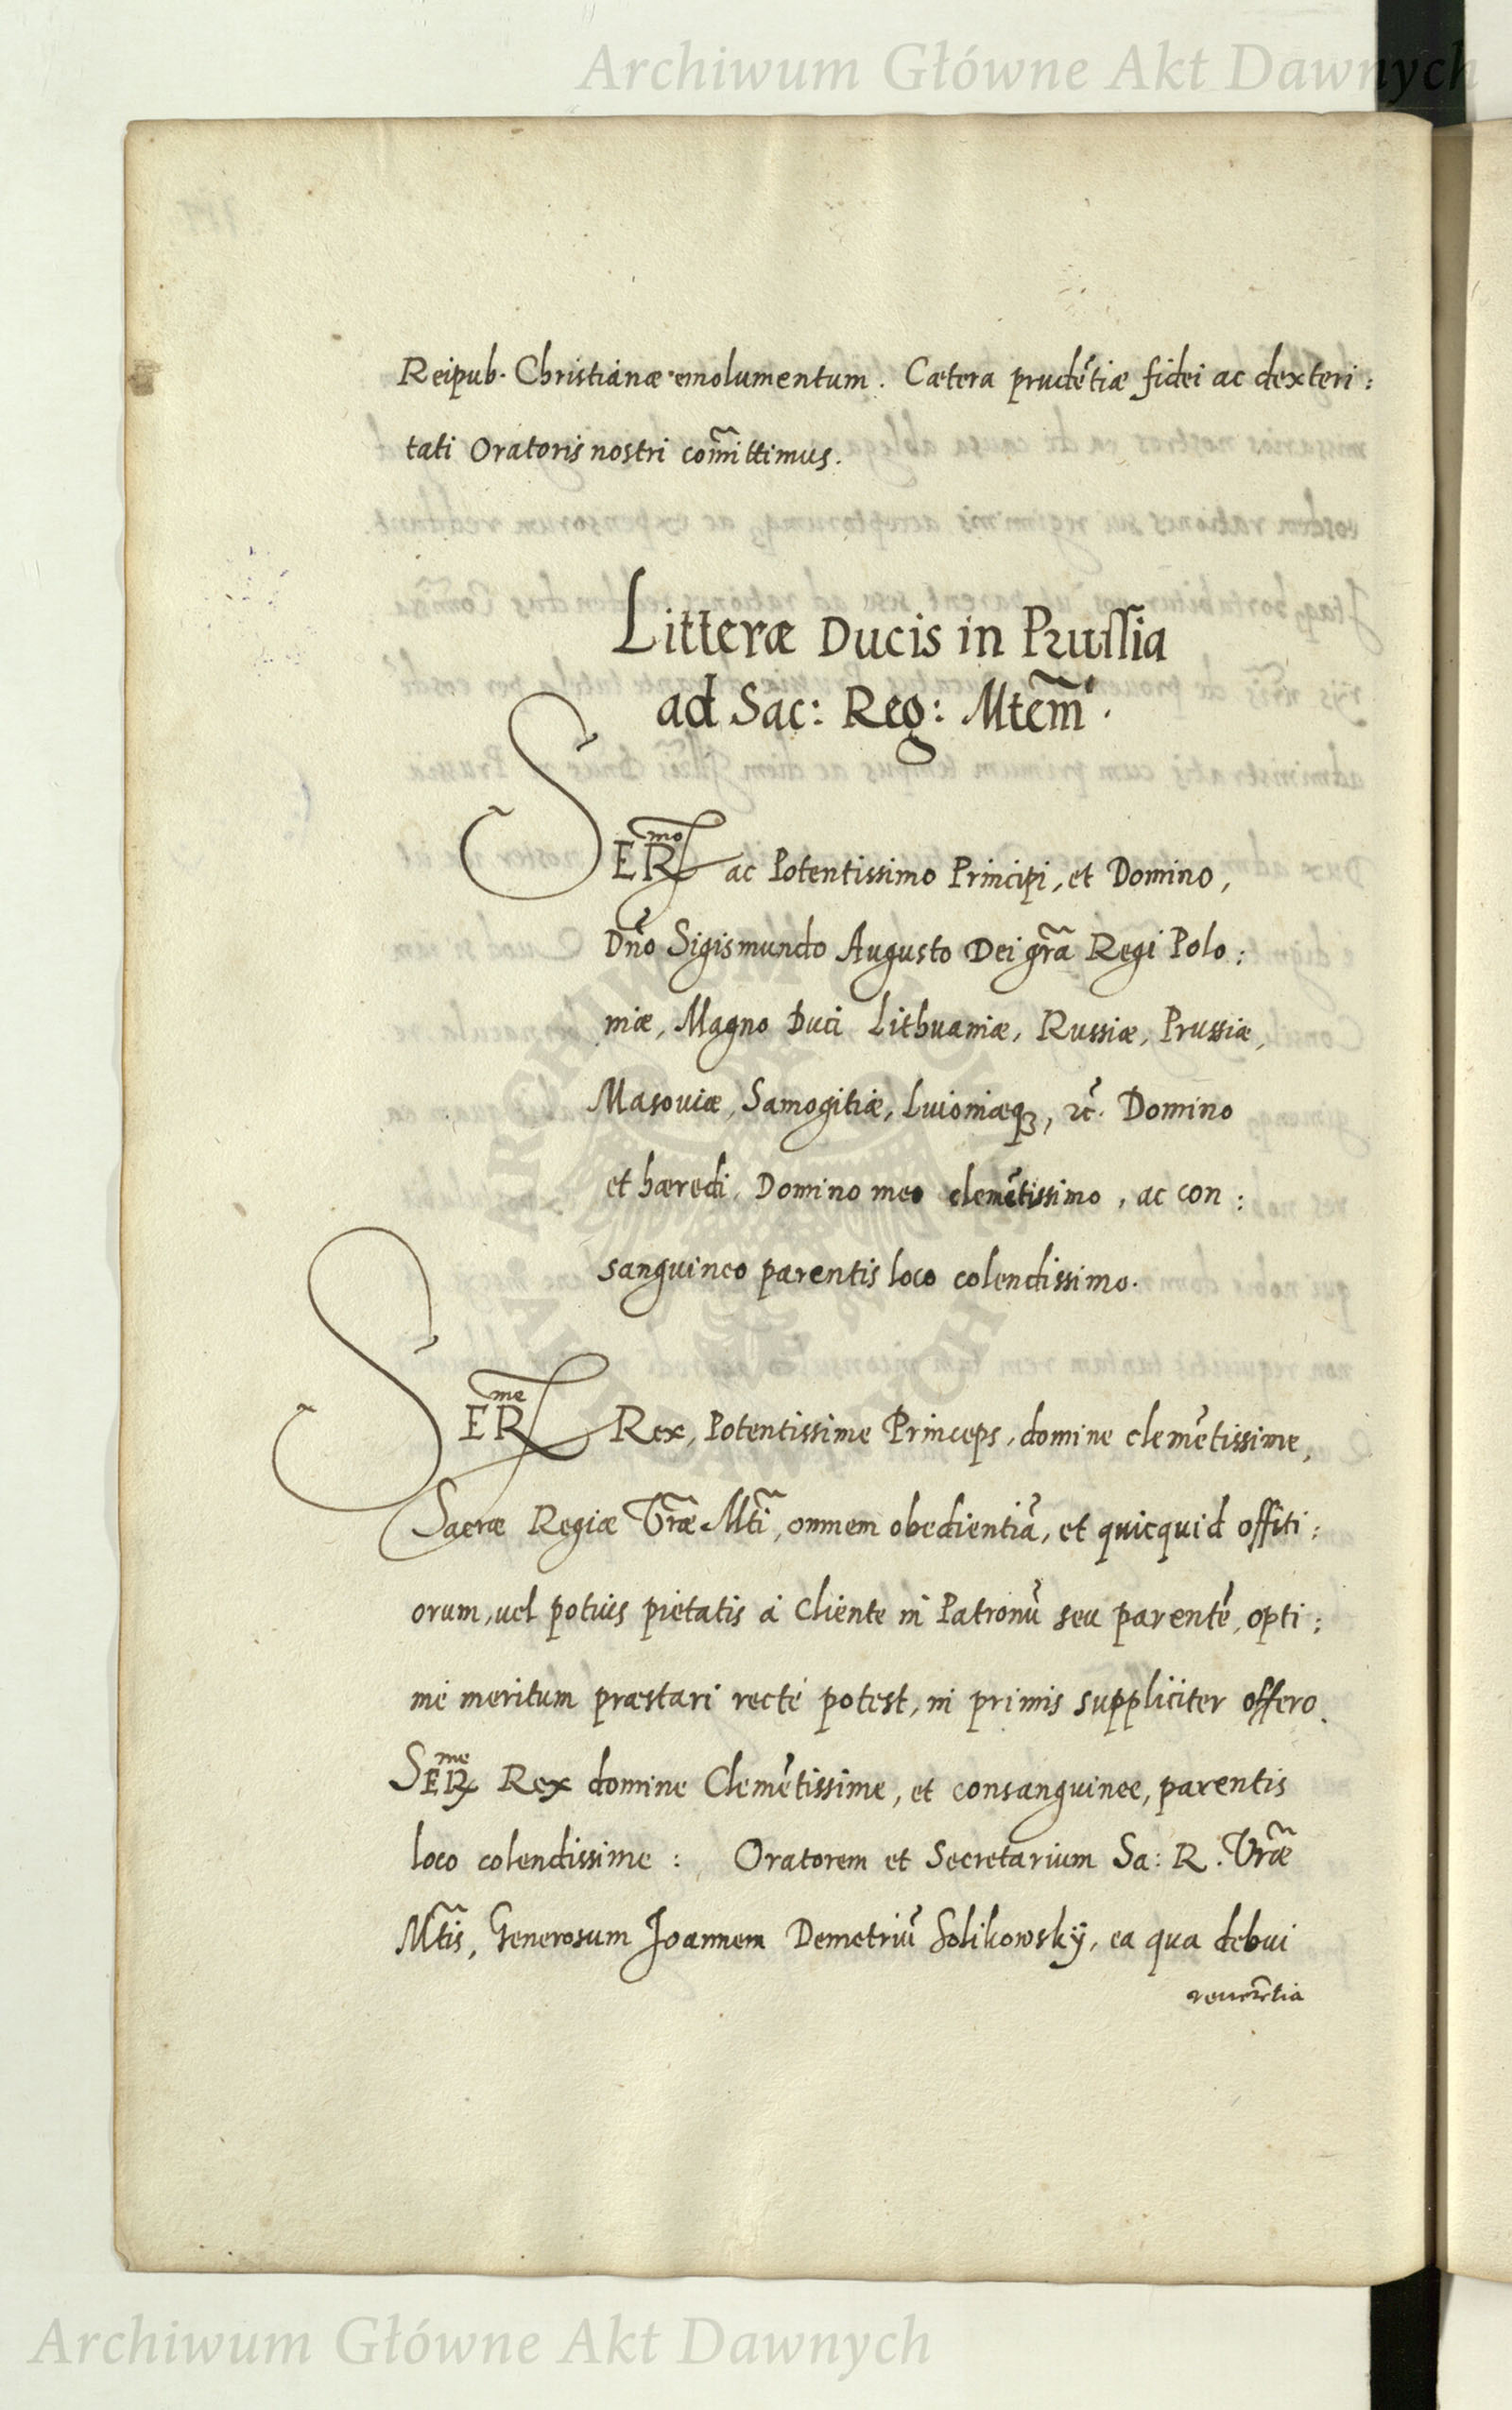 Archiwum Główne Akt Dawnych
Reipub. Christianæ emolumentum. Cætera prudẽtiæ fidei ac dexteri:
tati Oratoris nostri com̃ittimus.
Litteræ Ducis in Prussia
ad Sac: Reg: Mtem̃.
SERmo ac Potentissimo Principi, et Domino,
Dño Sigismundo Augusto Dei grã Regi Polo:
niæ, Magno Duci Lithuaniæ, Russiæ, Prussiæ,
Masouiæ, Samogitiæ, Luioniæq3, ꝛc̃. Domino
et hæredi, Domino meo clemẽtissimo, ac con:
sanguineo parentis loco colendissimo.
SERme Rex, Potentissime Princeps, domine clemẽtissime,
Sacræ Regiæ Vrãe Mtĩ, omnem obedientiã, et quicquid offiti:
orum, uel potius pietatis à Cliente in Patronũ seu parentẽ, opti:
mè meritum præstari rectè potest, in primis suppliciter offero.
SERme Rex domine Clemẽtissime, et consanguinee, parentis
loco colendissime: Oratorem et Secretarium Sa: R. Vrãe
Mtĩs, Generosum Joannem Demetriũ Solikowskÿ, ea qua debui
reuerẽtia
Archiwum Główne Akt Dawnych